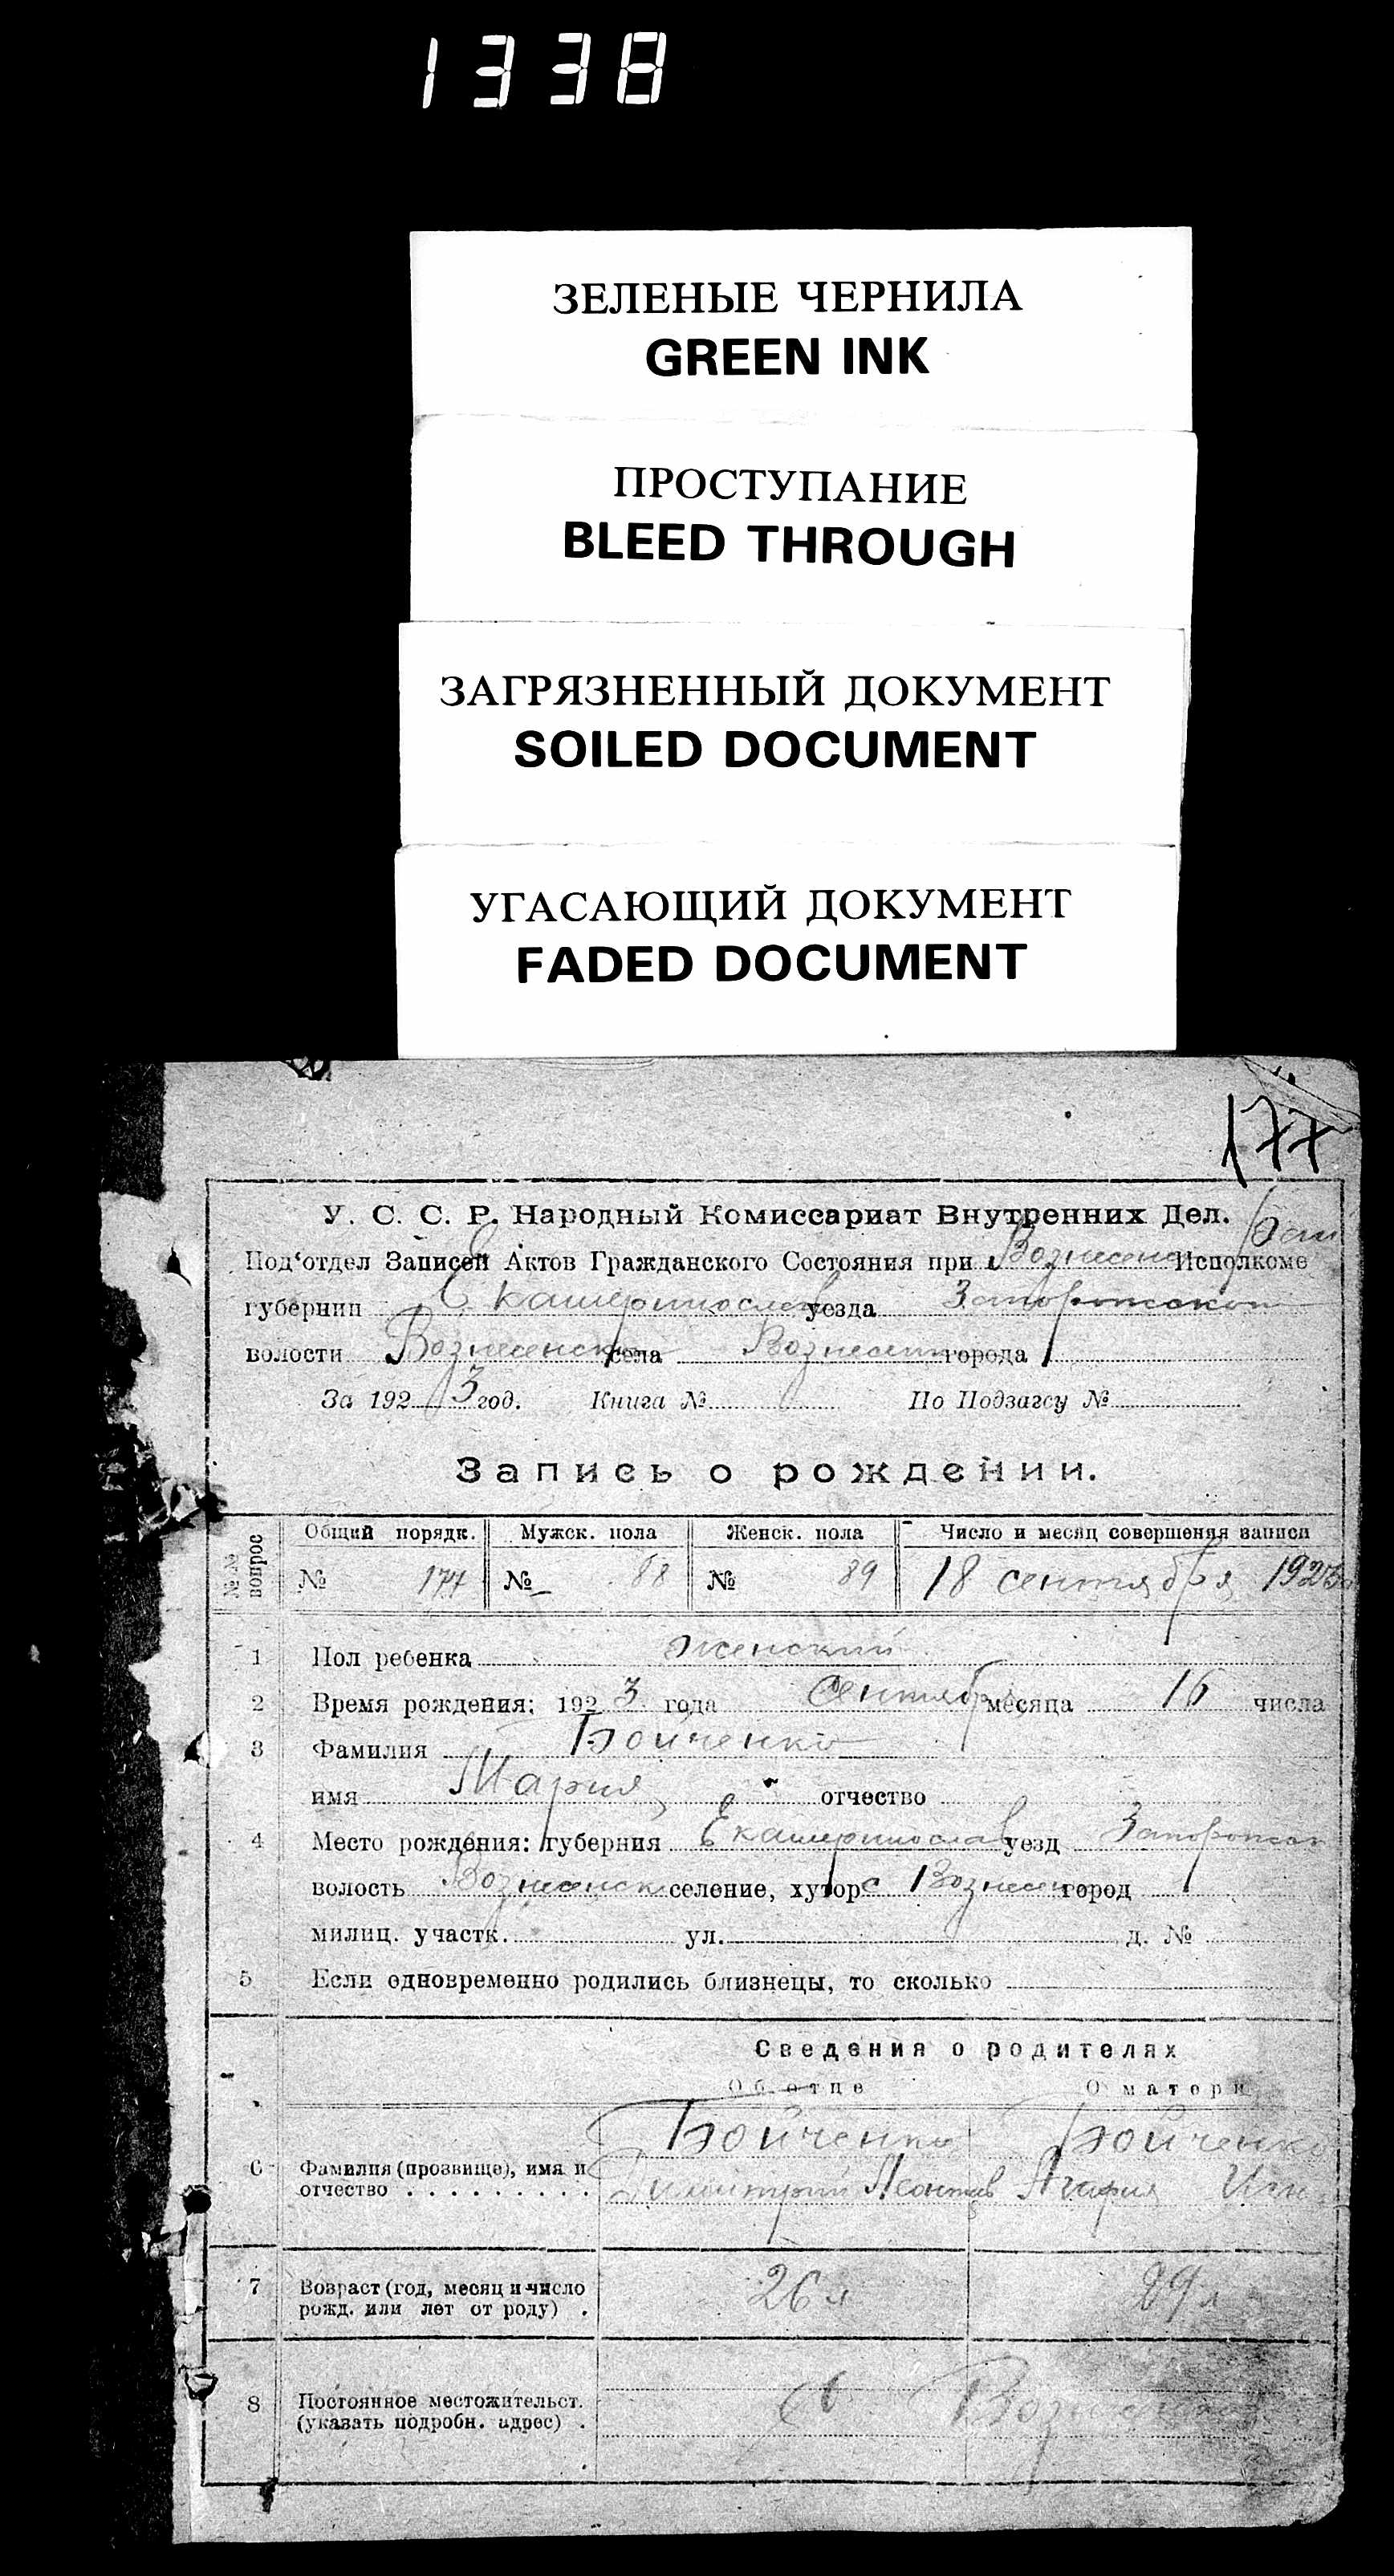 1338
ЗЕЛЕНЫЕ ЧЕРНИЛА
GREEN INK
ПРОСТУПАНИЕ
BLEED THROUGH
ЗАГРЯЗНЕННЫЙ ДОКУМЕНТ
SOILED DOCUMENT
УГАСАЮЩИЙ ДОКУМЕНТ
FADED DOCUMENT
177
У. С. С. Р. Народный Комиссариат Внутренних Дел.
Под'отдел Записей Актов Гражданского Состояния при Вознесенск Исполкоме
губернии Екатеринослав уезда Запорожском
волости Вознесенск села Вознесен города
За 1923 год. Книга № По Подзагсу №
Запись о рождении.
№№ вопрос Общий порядк. Мужск. пола Женск. пола Число и месяц совершения записи
№ 177 № 88 № 89 18 сентября 1923
1 Пол ребенка женский
2 Время рождения: 1923 года Сентябр месяца 16 числа
3 Фамилия Бойченко
имя Мария отчество
4 Место рождения: губерния Екатеринослав уезд Запорожск
волость Вознесенск селение, хутор с Вознесен город
милиц. участк. ул. д. №
5 Если одновременно родились близнецы, то сколько
Сведения о родителях
Об отце О матери
Бойченко Бойченко
6 Фамилия (прозвище), имя и Димитрий Леонтьев Агафия
отчество
7 Возраст (год, месяц и число 26 л 29 л
рожд. или лет от роду) .
8 Постоянное местожительст. с Вознесенка
(указать подробн. адрес) .